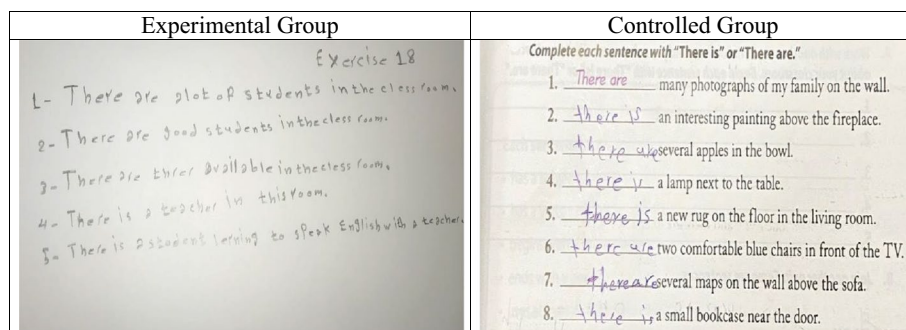 Experimental Group
Controlled Group
Exercise 18
1- There are alot of students in the cless room.
2- There are good students in the cless room.
3- There are three available in the cless room.
4- There is a teacher in this room.
5- There is a student lerning to speak English with a teacher.
Complete each sentence with "There is" or "There are."
1. There are many photographs of my family on the wall.
2. there is an interesting painting above the fireplace.
3. there are several apples in the bowl.
4. there is a lamp next to the table.
5. there is a new rug on the floor in the living room.
6. there are two comfortable blue chairs in front of the TV.
7. there are several maps on the wall above the sofa.
8. there is a small bookcase near the door.